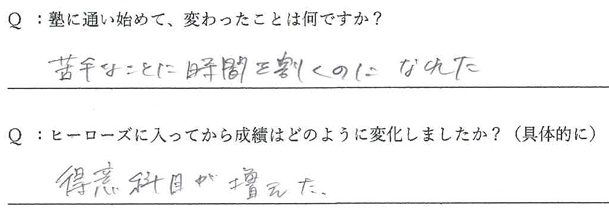 Q ：塾に通い始めて、変わったことは何ですか？
苦手なことに時間を割くのに なれた
Q ：ヒーローズに入ってから成績はどのように変化しましたか？（具体的に）
得意科目が増えた。